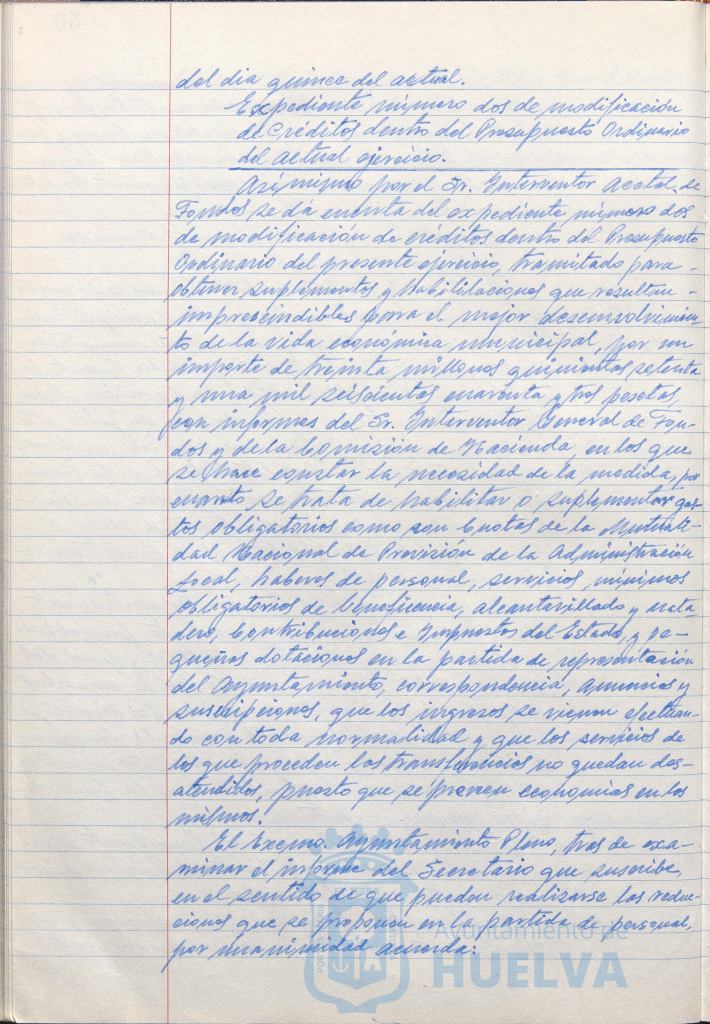 del dia quince del actual.
Expediente número dos de modificación
de Créditos dentro del Presupuesto Ordinario
del actual ejercicio.
Asímismo por el Sr. Interventor Acctal. de
Fondos se dá cuenta del expediente número dos
de modificación de créditos dentro del Presupuesto
Ordinario del presente ejercicio, tramitado para
obtener suplementos y habilitaciones que resultan
imprescindibles para el mejor desenvolvimien-
to de la vida económica municipal, por un
importe de treinta millones quinientas setenta
y una mil seiscientas cuarenta y tres pesetas,
con informes del Sr. Interventor General de Fon-
dos y de la Comisión de Hacienda, en los que
se hace constar la necesidad de la medida, por
cuanto se trata de habilitar o suplementar gas-
tos obligatorios como son Cuotas de la Mutuali-
dad Nacional de Previsión de la Administración
Local, haberes de personal, servicios, mínimos
obligatorios de Beneficencia, alcantarillado y mata-
dero, Contribuciones e Impuestos del Estado, y pe-
queñas dotaciones en la partida de representación
del Ayuntamiento, correspondencia, anuncios y
suscripciones, que los ingresos se vienen efectuan-
do con toda normalidad y que los servicios de
los que proceden las transferencias no quedan des-
atendidos, puesto que se preveen economías en los
mismos.
El Excmo. Ayuntamiento Pleno, tras de exa-
minar el informe del Secretario que suscribe,
en el sentido de que pueden realizarse las reduc-
ciones que se proponen en la partida de personal,
por unanimidad acuerda:
Ayuntamiento de
HUELVA